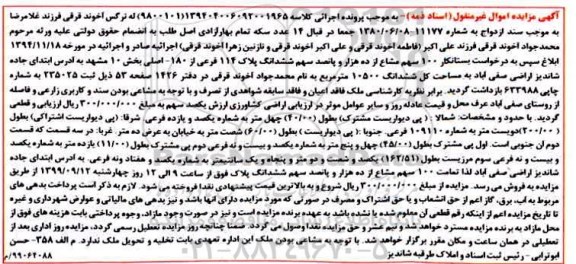 آگهی مزایده اموال غیرمنقول (اسناد ذمه) - به موجب پرونده اجرائی کلاسه ۱۳۹۴۰۴۰۰۶۰۹۲۰۰۱۹۶۵ (۹۸۰۰۱۰۱) له نرگس اخوند قرقی فرزند غلامرضا
به موجب سند ازدواج به شماره ۱۱۱۷۷-۱۳۸۰/۰۶/۰۸ جمعا در قبال ۱۴ عدد سکه تمام بهارآزادی اصل طلب به انضمام حقوق دولتی علیه ورثه مرحوم
محمدجواد اخوند قرقی فرزند علی اکبر (فاطمه اخوند قرقی و علی اکبر اخوند قرقی و نازنین زهرا اخوند قرقی) اجرائیه صادر و اجرائیه در مورخه ۱۳۹۴/۱۱/۱۸
ابلاغ سپس به درخواست بستانکار ۱۰۰ سهم مشاع از ده هزار و پانصد سهم ششدانگ پلاک ۱۱۴ فرعی از ۱۸۰ - اصلی بخش ۱۰ مشهد به آدرس ابتدای جاده
شاندیز اراضی صفی آباد به مساحت کل ششدانگ ۱۰۵۰۰ مترمربع به نام محمدجواد اخوند قرقی در دفتر ۱۴۲۶ صفحه ۵۳ ذیل ثبت ۲۳۵۰۲۵ به شماره
چاپی ۶۳۳۹۸۸ بازداشت گردید. برابر نظریه کارشناسی ملک فاقد اعیان و فاقد سابقه شواهدی از تصرف و با توجه به مشاعی بودن سند و کاربری زارعی و فاصله
از روستای صفی آباد عرف محل و قیمت عادله روز و سایر عوامل موثر در ارزیابی اراضی کشاورزی ارزش یکصد سهم به مبلغ ۳۰۰/۰۰۰/۰۰۰ ریال ارزیابی و قطعی
گردید. با حدود و مشخصات: شمالا: (پی دیواریست مشترک) بطول (۴۰/۰۰) چهل متر به شماره یکصد و یازده فرعی. شرقا: (پی دیواریست اشتراکی) بطول
(۲۰۰/۰۰) دویست متر به شماره ۱۰۹۱۱۰ فرعی. جنوبا: (پی دیواریست) بطول (۶۰/۰۰) شصت متر به خیابان به عرض ده متر. غربا: در سه قسمت که قسمت
دوم آن جنوبی است. اول پی مشترک بطول (۴۵/۰۰) چهل و پنج متر به شماره یکصد و بیست و نه فرعی دوم پی مشترک بطول (۱۱/۰۰) یازده متر به شماره یکصد
و بیست و نه فرعی سوم مرزیست بطول (۱۶۲/۵۱) یکصد و شصت و دو متر و پنجاه و یک سانتیمتر به شماره یکصد و هفتاد ونه فرعی. به آدرس ابتدای جاده
شاندیز اراضی صفی آباد لذا تمامت ۱۰۰ سهم مشاع از ده هزار و پانصد سهم ششدانگ پلاک فوق از ساعت ۹ الی ۱۲ روز چهارشنبه ۱۳۹۹/۰۹/۱۲ از طریق
مزایده به فروش می رسد. مزایده از مبلغ ۳۰۰/۰۰۰/۰۰۰ ریال شروع و به بالاترین قیمت پیشنهادی نقدا فروخته می شود. لازم به ذکر است پرداخت بدهی های
مربوط به آب، برق، گاز اعم از حق انشعاب و یا حق اشتراک و مصرف در صورتی که مورد مزایده دارای آنها باشد و نیز بدهی های مالیاتی و عوارض شهرداری و غیره
تا تاریخ مزایده اعم از اینکه رقم قطعی آن معلوم شده یا نشده باشد به عهده برنده مزایده است و نیز در صورت وجود مازاد، وجوه پرداختی بابت هزینه های فوق از
محل مازاد به برنده مزایده مسترد خواهد شد و نیم عشر و حق مزایده نقدا وصول می گردد. ضمنا چنانچه روز مزایده تعطیل رسمی گردد، مزایده روز اداری بعد از
تعطیلی در همان ساعت و مکان مقرر برگزار خواهد شد. با توجه به مشاعی بودن ملک این اداره تعهدی بابت تخلیه و تحویل ملک ندارد. م الف ۳۵۸ - حسن
ابوترابی - رئیس ثبت اسناد و املاک طرقبه شاندیز
۹۹۰۶۴۰۸۸/م